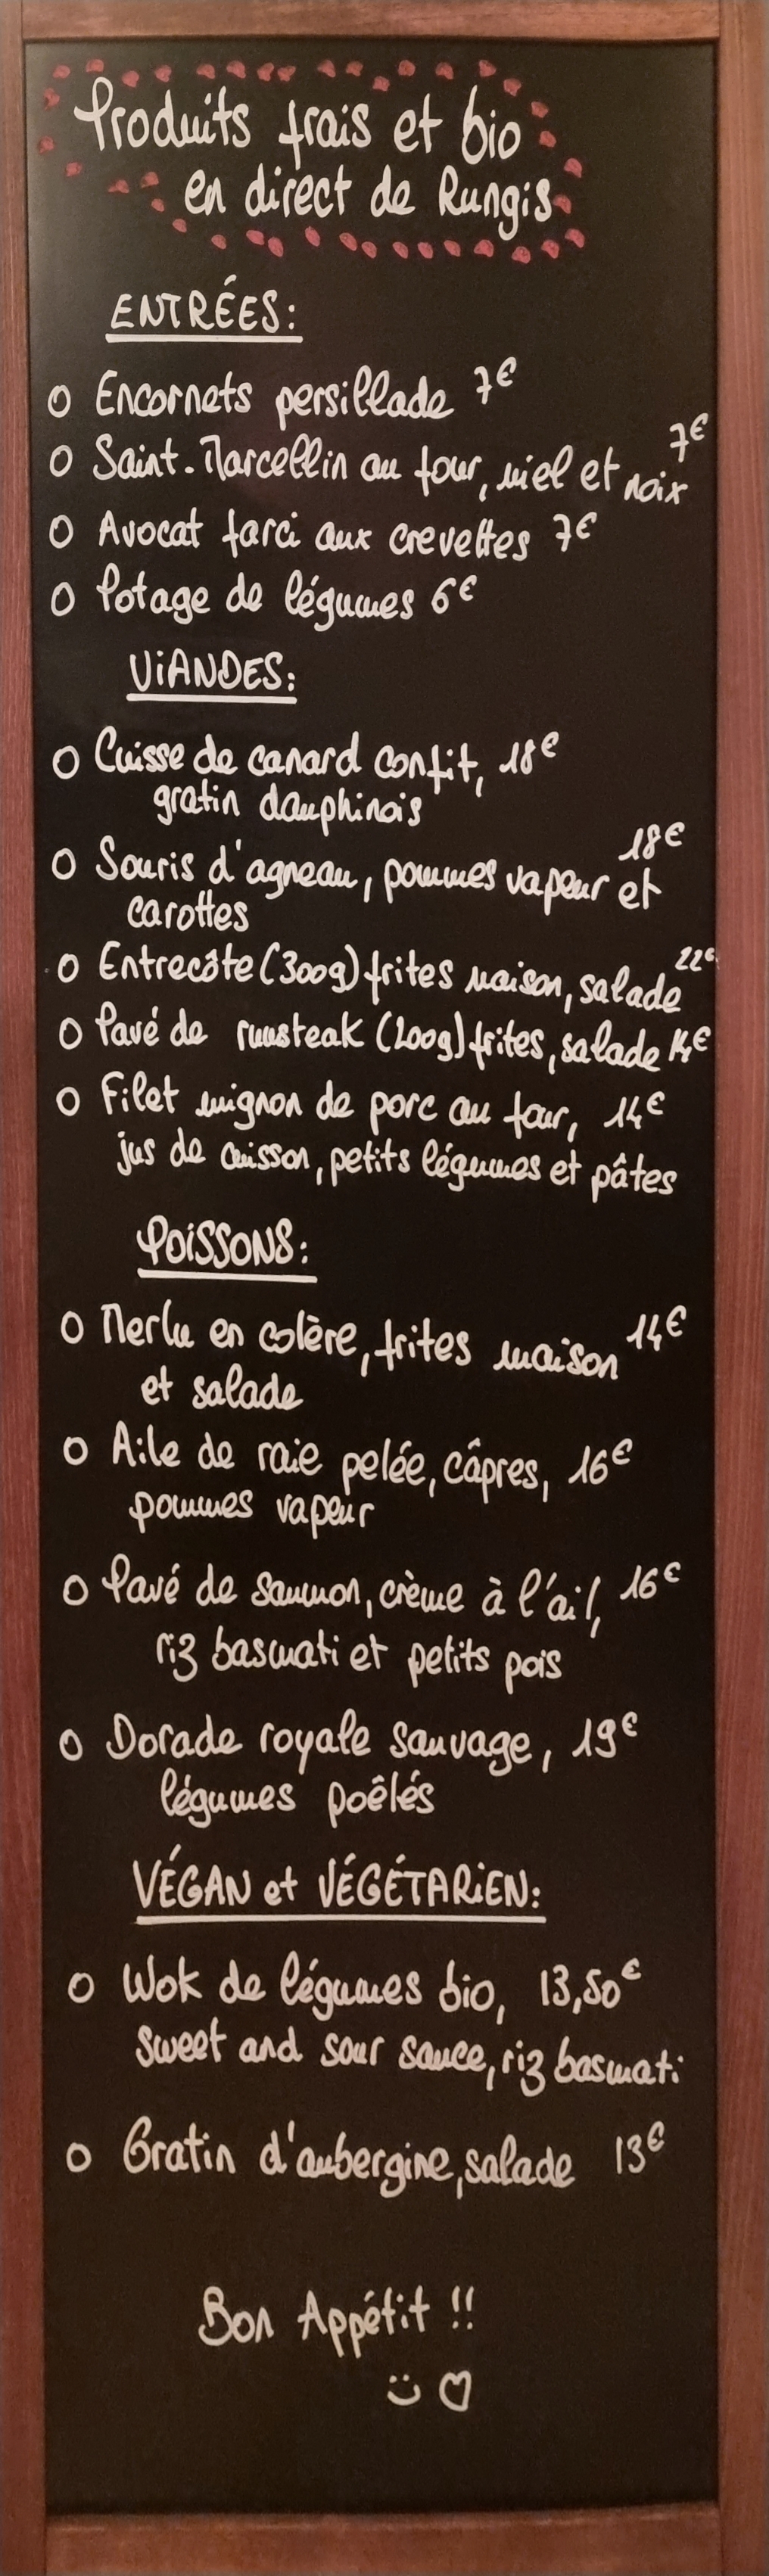 Produits frais et bio
en direct de Rungis
ENTRÉES:
O Encornets persillade 7€
O Saint-Marcellin au four, miel et noix 7€
O Avocat farci aux crevettes 7€
O Potage de légumes 6€
ViANDES:
O Cuisse de canard confit, 18€
gratin dauphinois
O Souris d'agneau, pommes vapeur et 18€
carottes
O Entrecôte (300g) frites maison, salade 22€
O Pavé de rumsteak (200g) frites, salade 14€
O Filet mignon de porc au four, 14€
jus de cuisson, petits légumes et pâtes
POiSSONS:
O Merlu en colère, frites maison 14€
et salade
O Aile de raie pelée, câpres, 16€
pommes vapeur
O Pavé de saumon, crème à l'ail, 16€
riz basmati et petits pois
O Dorade royale sauvage, 19€
légumes poêlés
VÉGAN et VÉGÉTARiEN:
O Wok de légumes bio, 13,50€
sweet and sour sauce, riz basmati
O Gratin d'aubergine, salade 13€
Bon Appétit !!